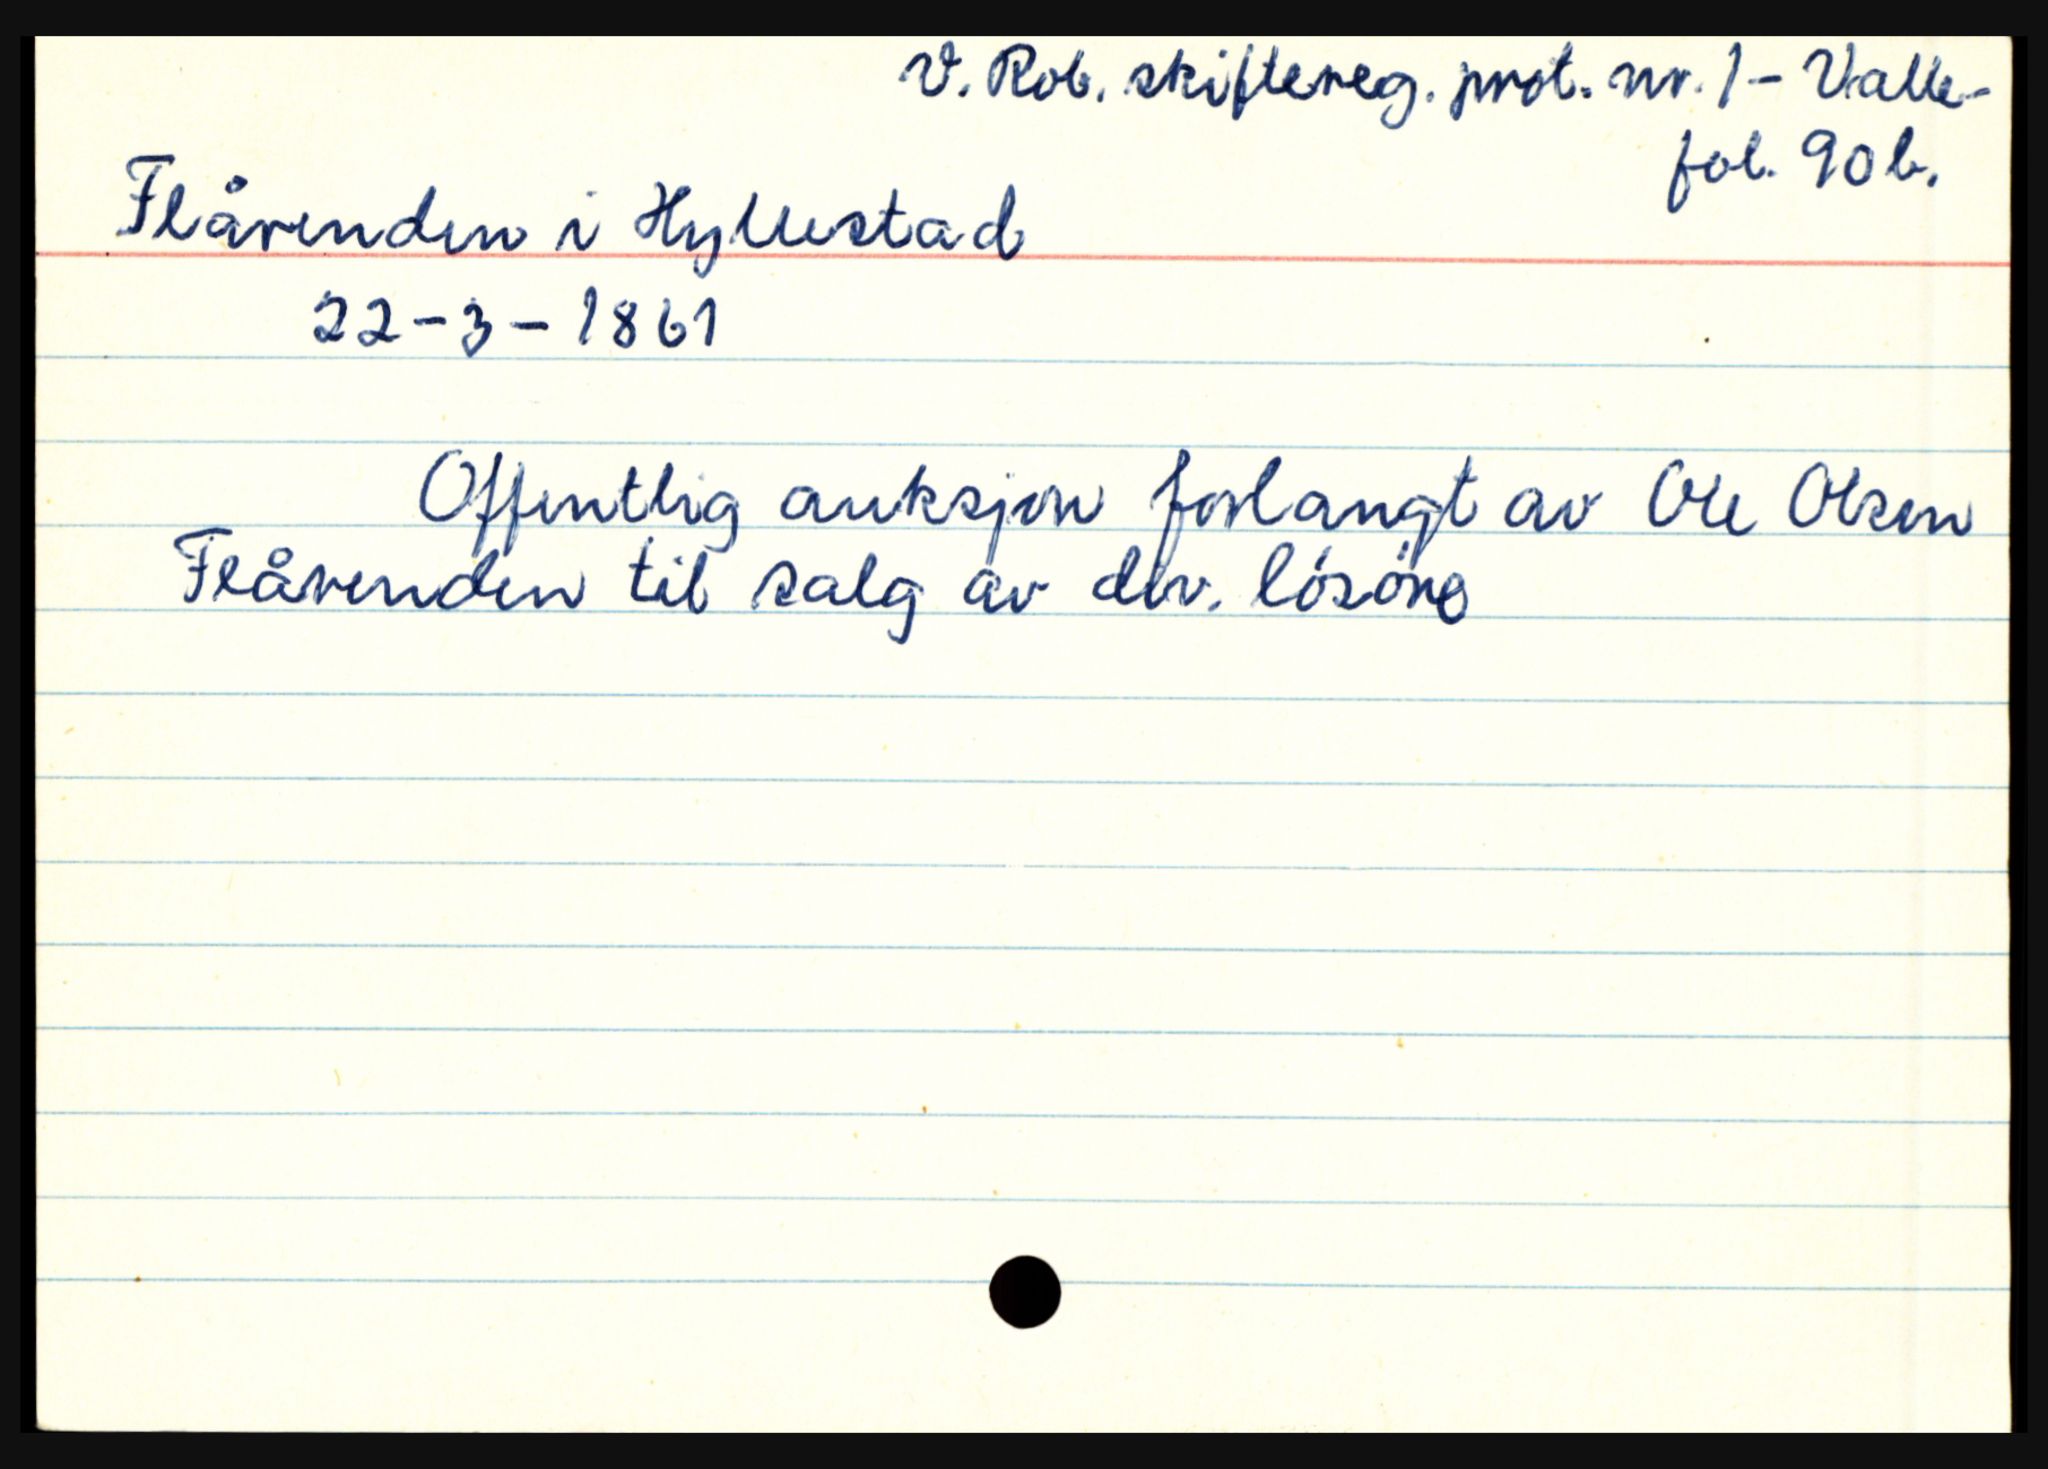 V. Rob. skiftereg. prot. nr. 1 - Valle -
fol. 90 b.
Flårenden i Hyllestad
22-3-1861
Offentlig auksjon forlangt av Ole Olsen
Flårenden til salg av div. lósóre